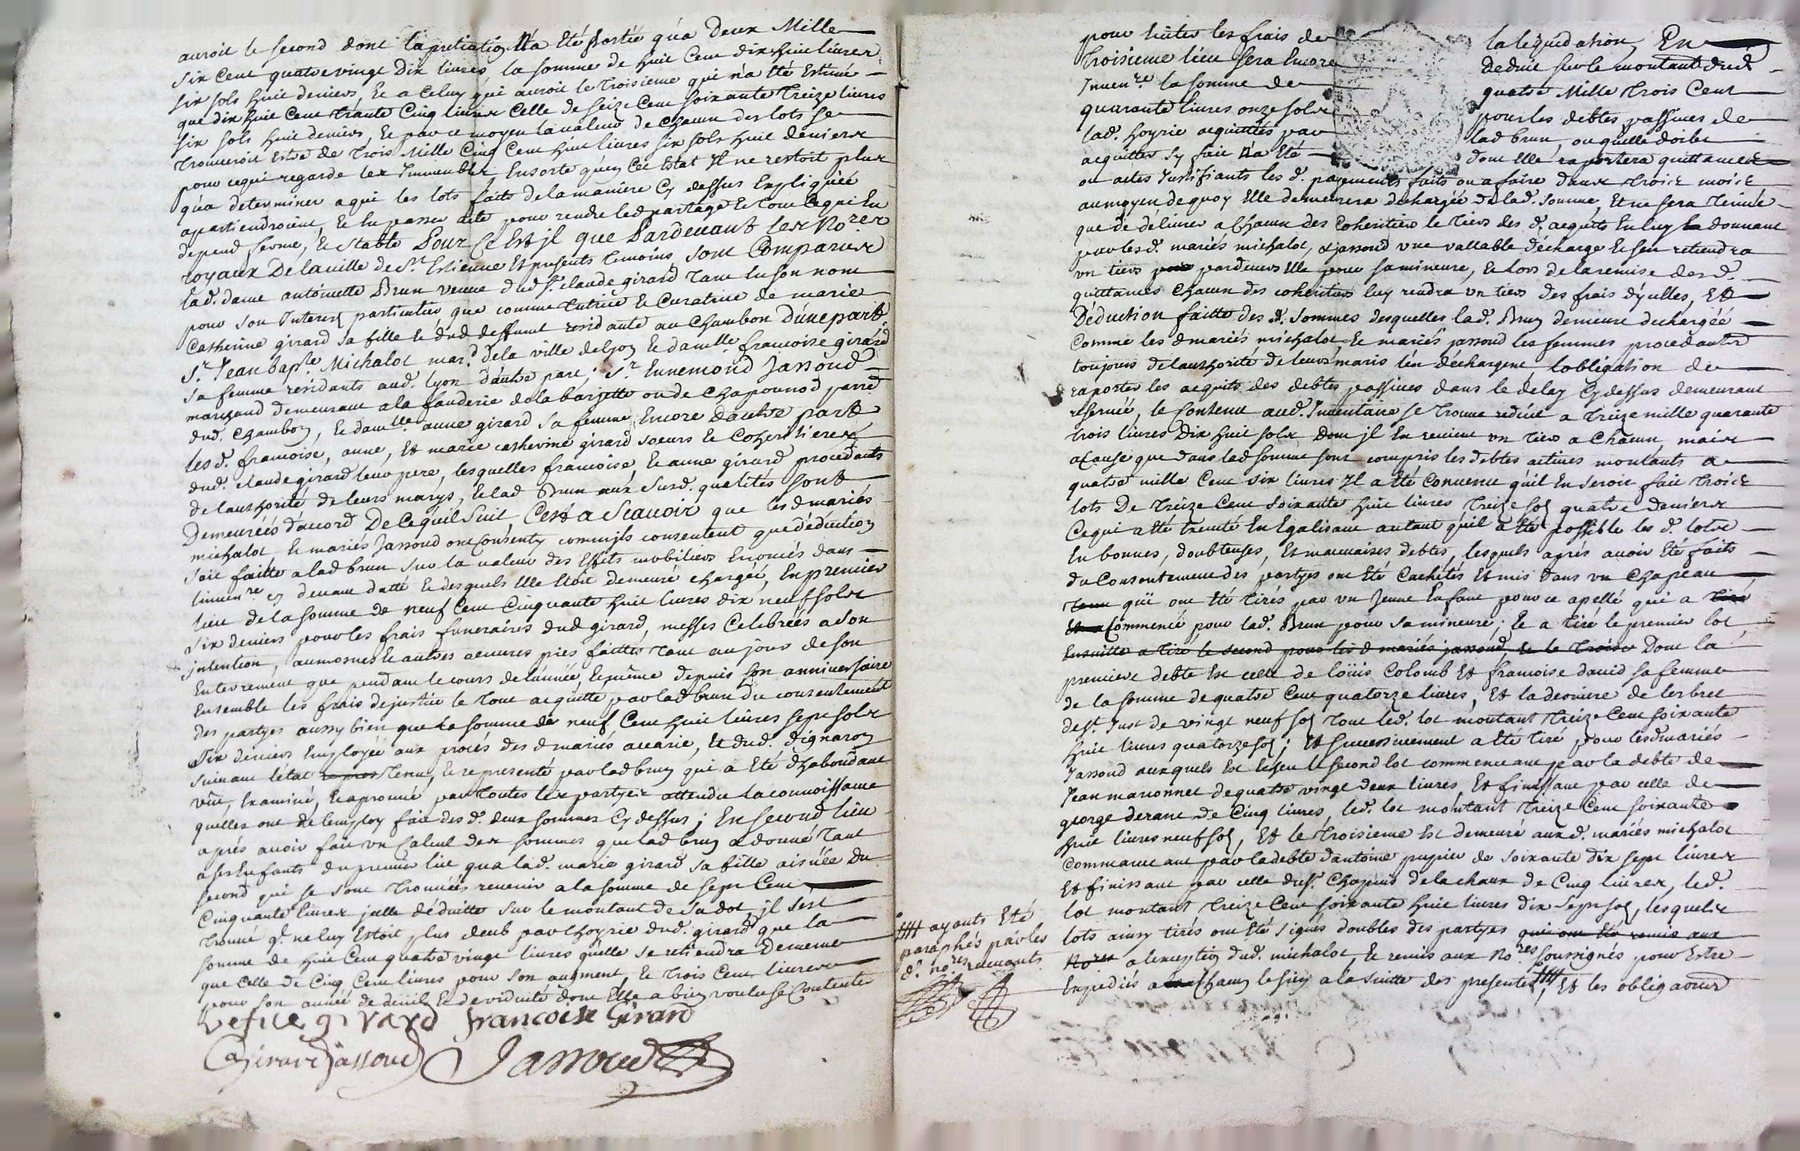 auroit le second dont la pretiation n'a été portée qu'a Deux Mille
six cent quatrevingt Dix livres la somme de huit Cent dix huit livres
six sols huit deniers, Et a Celuy qui auroit le Troisieme qui n'a été Estimé
que dix huit Cent Trante Cinq livres Celle de seize Cent soixante Treize livres
six sols huit deniers, Et par ce moyen la valeur de chacun des lots se
trouveroit Estre de Trois Mille Cinq Cent huit livres six sols huit deniers
pour ce qui regarde les Immeubles Ensorte qu'en Cet Estat Il ne restoit plus
qu'a determiner a qui les lots faits de la maniere Cy dessus Expliquée
apartiendroient, Et En passer acte pour rendre led partage Et Tout Ce qui En
depend ferme, Et Stable Pour Ce Est jl que Pardevant les No.res
royaux De la ville de St Estienne Et presents temoins sont Comparües
lad. dame antoinette Brun veuve dud Sr claude girard Tant En son nom
pour son Interest particulier que comme tutrice Et Curatrice de marie
Catherine girard sa fille Et dud deffunt residante au Chambon D'une part,
Sr Jean bapte Michalot mard de la ville de Lyon Et damlle francoise girard
sa femme residants aud. lyon d'autre part; Sr Ennemond Jassoud
marchand demeurant a la fanderie de la barjette parroisse
dud. Chambon, Et damlle anne girard sa femme, Encore d'autre part
lesd. francoise, anne, Et marie catherine girard soeurs Et Coheritieres
dud. claude girard leur pere, lesquelles francoise, Et anne girard procedants
de l'authorité de leurs marys, Et lad Brun aux susd. qualités sont
Demeurées d'accord De Ce qui Suit C'est a Scavoir que lesd mariés
michalot Et mariés Jassoud ont Consenty comm'jls consentent que deduction
soit faitte a lad brun sur la valeur des Effets mobiliers Enoncés dans
l'invenre cy devant datté Et desquels Elle Etoit demeuré chargée, En premier
lieu de la somme de neuf Cent Cinquante huit livres dix neuf sols
six deniers pour les frais funeraires dud girard, messes Celebrées a son
jntention, aumosnes Et autres oeuvres pies faittes tant au jour de son
Enterrement que pendant le cours de l'année, Et même depuis son anniversaire
Ensemble les frais de justice le tout acquitté par lad brun du consentement
des partyes aussy bien que la somme de neuf Cent huit livres sept sols
six deniers Employée aux procés des d mariés accarie, Et dud. dignaron
suivant l'état tenu, Et representé par lad brun qui a Eté d'habondant
vûe, Examiné, Et aprouvé par toutes les partyes attendu la connoissance
qu'elles ont de l'employ fait des d. deux sommes Cy dessus; En Second lieu
apres avoir fait un Calcul des sommes que lad brun a donné tant
a ses Enfants du premier lict qu'a lad. marie girard sa fille aisnée Du
second qui se sont trouvées revenir a la somme de sept Cent
Cinquante livres jcelle déduitte sur le montant de sa dot, jl s'est
trouvé q. ne luy Estoit plus deub par l'hoyrie dud. girard que la
somme de huit Cent quatre vingt livres qu'elle se retiendra De meme
que Celle de Cinq Cent livres pour son augment, Et Trois Cent livres
pour son année de deuil Et de viduité dont Elle a bien voulu se Contenter
vefue girard francoise Girard
A Girard Jassoud Jassoud
pour Eviter les frais de la liquidation, En
Troisieme lieu sera Encore deduit sur le montant dud
Invenre la somme de quatre Mille Trois Cent
quarante livres onze sols pour les debtes passives de
lad. hoyrie acquittés par lad brun, ou qu'elle doibt
acquitter sy fait n'a été dont Elle raportera quittances
ou actes Justifiants les d. payements faits ou a faire dans Trois mois
au moyen de quoy Elle demeurera dechargée de lad. somme, Et ne sera Tenüe
que de délivrer a Chacun des Coheritiers le Tiers des d. acquits En luy donnant
par lesd. mariés michalot, & jassoud une vallable décharge Et s'en retiendra
un tiers pardevers Elle pour sa mineure, Et lors de la remise des d.
quittances Chacun des coheritiers luy rendra un tiers des frais d'ycelles, Et
Déduction faitte des d. sommes desquelles lad. Brun demeure dechargée
Comme les d mariés michalot Et mariés jassoud les femmes procedants
toujours de l'authorité de leurs maris l'en déchargent l'obligation de
raporter les acquits des debtes passives dans le delay Cy dessus demeurant
reservée, le Contenu aud. Inventaire se trouve reduit a Treize mille quarante
trois livres Dix huit sols, Dont jl En revient un tiers a Chacun, mais
a Cause que dans lad somme sont compris les debtes actives montants a
quatre mille Cent six livres Il a été Convenu qu'il En seroit fait Trois
lots De Treize Cent soixante huit livres Treize sols quatre deniers
Ce qui a été Executé En Egalisant autant qu'il a été possible les d. lots
En bonnes, doubteuses, Et mauvaises debtes, lesquels apres avoir Eté faits
du Consentement des partyes ont Eté Cachetés Et mis dans un Chapeau
qui ont Eté tirés par un Jeune Enfant pour ce apellé qui a
Commencé pour lad. Brun pour sa mineure; Et a tiré le premier lot
Ensuitte a tiré le second pour les d mariés jassoud, Et le Troisie Dont la
premiere debte Est celle de loüis Colomb Et francoise david sa femme
de la somme de quatre Cent quatorze livres, Et la derniere de lerbret
de St. Just de vingt neuf sols Tout led. lot montant Treize Cent soixante
huit livres quatorze sols; Et successivement a été tiré pour lesd mariés
Jassoud auxquels Est Echeu le second lot commenceant par la debte de
Jean marconnet de quatre vingt deux livres, Et finissant par celle de
george derane de Cinq livres, led. lot montant Treize Cent soixante
huit livres neuf sols, Et le Troisieme Est demeuré auxd. mariés michalot
Commanceant par la debte d'antoine papier de soixante dix sept livres
Et finissant par celle dud. Chapuis de la chaux de Cinq livres, led.
lot montant Treize Cent soixante huit livres dix sept sols, lesquels
lots ainsy tirés ont Eté signés doubles des partyes qui ont Eté remis aux
Nores a l'exception dud. michalot, Et remis aux Nores soussignés pour Estre
Expediés a Chacun le sien a la suitte des presentes ####, Et les obligations
#### ayants Eté
paraphés par les
d. nores recevants